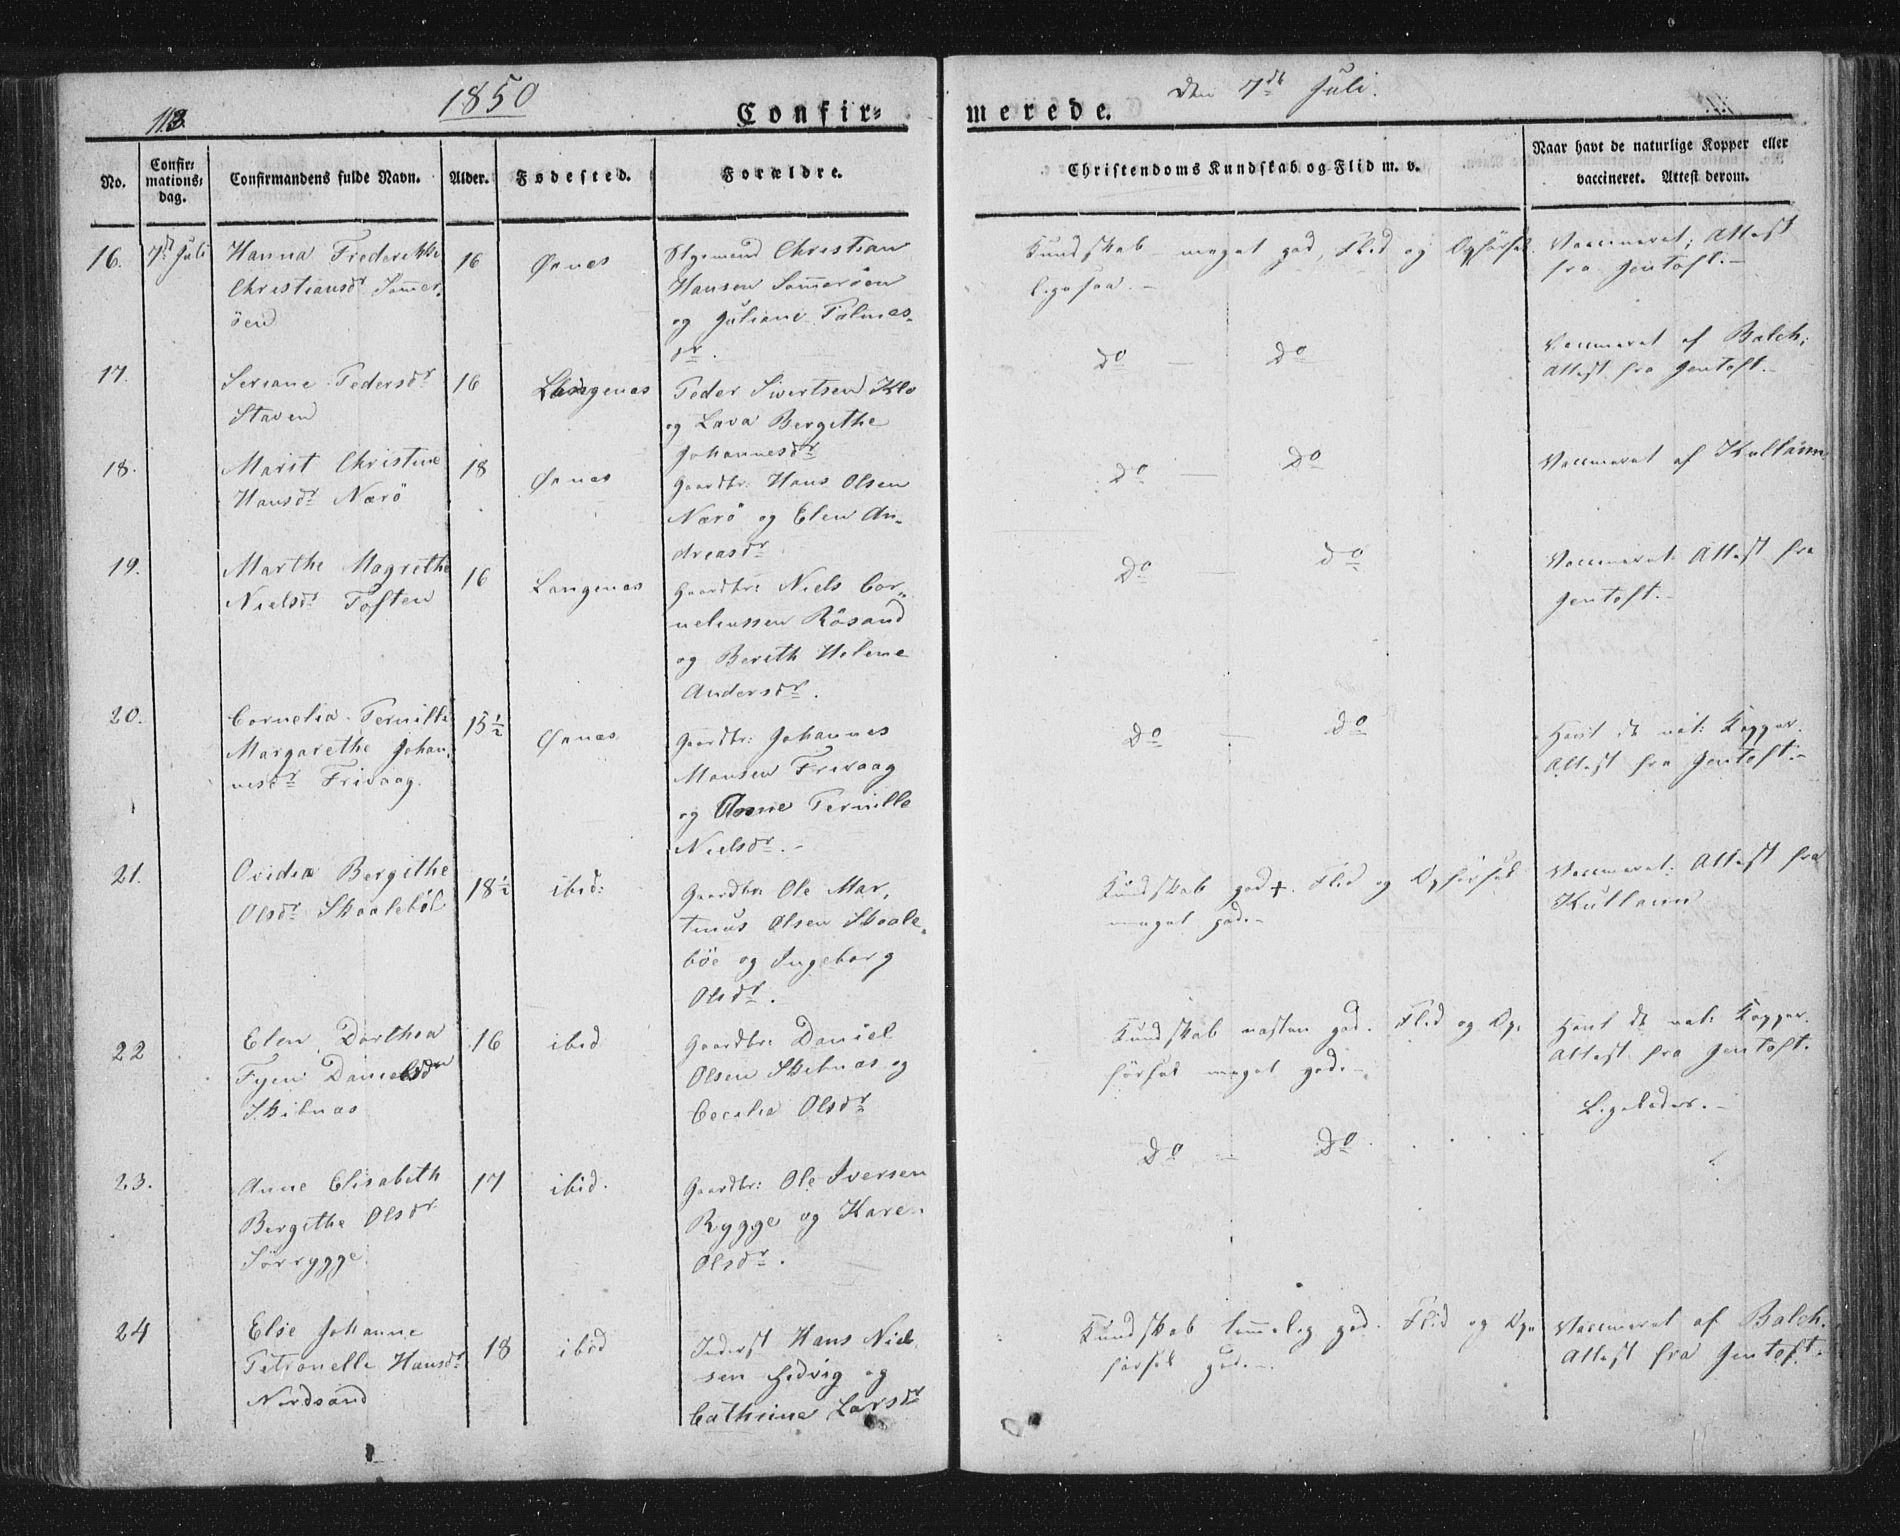 113.
1850
Confir=
merede.
Den 7de Juli.
No.
Confir=
mations=
dag.
Confirmandens fulde Navn.
Alder.
Fødested.
Forældre.
Christendoms Kundskab og Flid m. v.
Naar havt de naturlige Kopper eller
vaccineret. Attest derom.
16.
7de Juli
Hanna Frederikke
Christiansdr Somer-
öen
16
Øxnes
Christian
Hansen Someröen
og Juliane
dr.
Kundskab meget god, Flid og Opförsel
ligesaa.
Vaccineret; Attest
fra Jentoft.
17.
Seriane Pedersdr
Staven
16
Langenes
Peder Sivertsen Klo
og Lava Bergithe
Johannesdr
Do — Do
Vaccineret af Balch;
Attest fra Jentoft.
18.
Marit Christine
Hansdr Nærö
18
Øxnes
Gaardbr: Hans Olsen
Nærö og Elen An-
dreasdr
Do — Do
Vaccineret af
19.
Marthe Magrethe
Nielsdr Toften
16
Langenes
Gaardbr: Niels Cor-
neliussen Rösand
og Bereth Helene
Andersdr.
Do — Do
Vaccineret. Attest fra
Jentoft.
20.
Cornelia Pernille
Margarethe Johan-
nesdr Frivaag.
15½
Øxnes
Gaardbr: Johannes
Monsen Frivaag
og Anne Pernille
Nielsdr.
Do — Do
Havt de nat: Kopper.
Attest fra Jentoft.
21.
Ovidia Bergithe
Olsdr Skaaleböl
18½
ibid:
Gaardbr: Ole Mar-
tinus Olsen Skaale-
böe og Ingeborg
Olsdr.
Kundskab god+. Flid og Opförsel
meget god.
Vaccineret. Attest fra
22
Elen Dorthea
Fyen Danielsdr
Skibnæs
16
ibid
Gaardbr: Daniel
Olsen Skibnæs og
Cecelia Olsdr
Kundskab næsten god. Flid og Op-
försel meget god.
Havt de nat: Kopper.
Attest fra Jentoft.
23.
Anne Elisabeth
Bergithe Olsdr
Sörrygge.
17
ibid.
Gaardbr: Ole Iversen
Rygge og Karen
Olsdr.
Do — Do
Ligeledes.
24
Else Johanne
Petronelle Hansdr
Nordsand
18
ibid
Inderst Hans Niel-
sen Hedvig og
Cathrine Larsdr
Kundskab temmelig god. Flid og Op-
försel god.
Vaccineret af Balch.
Attest fra Jentoft.